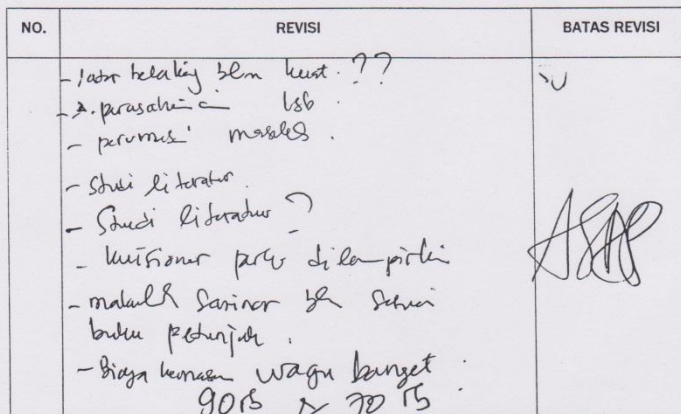 NO. REVISI BATAS REVISI
- latar belakang blm kuat. ??
- perusahaan lsb.
- perumusan masalah.
- Studi literatur.
- Studi literatur ?
- kuisioner perlu dilampirkan
- makalah Seminar blm sesuai
buku petunjuk.
- Biaya wagu banget.
90 rb 70 rb